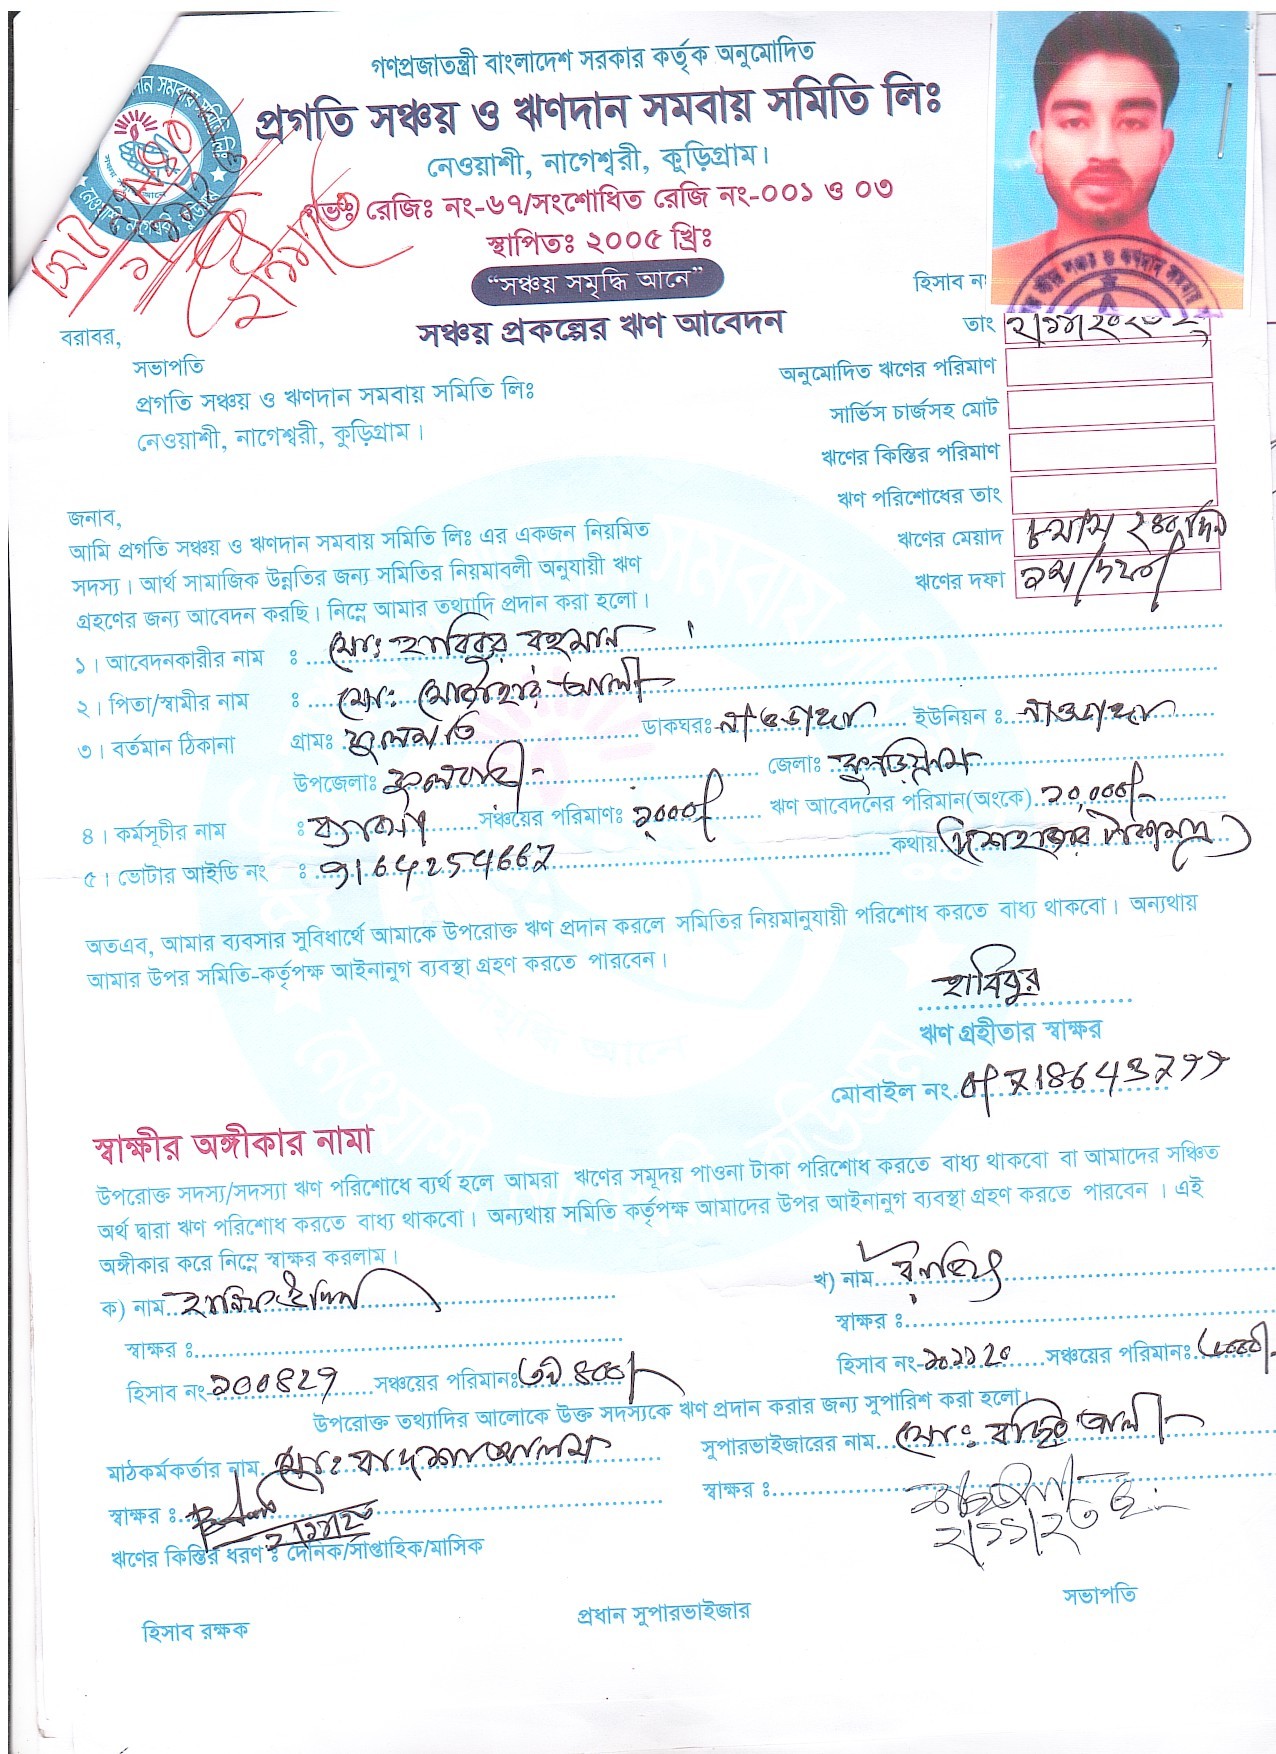 গণপ্রজাতন্ত্রী বাংলাদেশ সরকার কর্তৃক অনুমোদিত
প্রগতি সঞ্চয় ও ঋণদান সমবায় সমিতি লিঃ
নেওয়াশী, নাগেশ্বরী, কুড়িগ্রাম।
রেজিঃ নং-৬৭/সংশোধিত রেজি নং-০০১ ও ০৩
স্থাপিতঃ ২০০৫ খ্রিঃ
“সঞ্চয় সমৃদ্ধি আনে”
হিসাব নং
সঞ্চয় প্রকল্পের ঋণ আবেদন
তাং
বরাবর,
সভাপতি
প্রগতি সঞ্চয় ও ঋণদান সমবায় সমিতি লিঃ
নেওয়াশী, নাগেশ্বরী, কুড়িগ্রাম।
অনুমোদিত ঋণের পরিমাণ
সার্ভিস চার্জসহ মোট
ঋণের কিস্তির পরিমাণ
ঋণ পরিশোধের তাং
ঋণের মেয়াদ ৮ মাস ২৪০ দিন
ঋণের দফা ১ম দফা
জনাব,
আমি প্রগতি সঞ্চয় ও ঋণদান সমবায় সমিতি লিঃ এর একজন নিয়মিত
সদস্য। আর্থ সামাজিক উন্নতির জন্য সমিতির নিয়মাবলী অনুযায়ী ঋণ
গ্রহণের জন্য আবেদন করছি। নিম্নে আমার তথ্যাদি প্রদান করা হলো।
১। আবেদনকারীর নাম : মোঃ হাবিবুর রহমান
২। পিতা/স্বামীর নাম : মোঃ আলী
৩। বর্তমান ঠিকানা গ্রামঃ ফুলমতি ডাকঘরঃ নাওডাঙ্গা ইউনিয়ন : নাওডাঙ্গা
উপজেলাঃ ফুলবাড়ী জেলাঃ কুড়িগ্রাম
৪। কর্মসূচীর নাম : সঞ্চয়ের পরিমাণঃ ২০০০/- ঋণ আবেদনের পরিমান(অংকে) ২০,০০০/-
কথায় বিশ হাজার টাকা মাত্র
৫। ভোটার আইডি নং : 9164254667
অতএব, আমার ব্যবসার সুবিধার্থে আমাকে উপরোক্ত ঋণ প্রদান করলে সমিতির নিয়মানুযায়ী পরিশোধ করতে বাধ্য থাকবো। অন্যথায়
আমার উপর সমিতি-কর্তৃপক্ষ আইনানুগ ব্যবস্থা গ্রহণ করতে পারবেন।
হাবিবুর
ঋণ গ্রহীতার স্বাক্ষর
মোবাইল নং.
স্বাক্ষীর অঙ্গীকার নামা
উপরোক্ত সদস্য/সদস্যা ঋণ পরিশোধে ব্যর্থ হলে আমরা ঋণের সমূদয় পাওনা টাকা পরিশোধ করতে বাধ্য থাকবো বা আমাদের সঞ্চিত
অর্থ দ্বারা ঋণ পরিশোধ করতে বাধ্য থাকবো। অন্যথায় সমিতি কর্তৃপক্ষ আমাদের উপর আইনানুগ ব্যবস্থা গ্রহণ করতে পারবেন। এই
অঙ্গীকার করে নিম্নে স্বাক্ষর করলাম।
ক) নাম
খ) নাম
স্বাক্ষর :
স্বাক্ষর :
হিসাব নং- ১০০৪২৭ সঞ্চয়ের পরিমানঃ
হিসাব নং- সঞ্চয়ের পরিমানঃ
উপরোক্ত তথ্যাদির আলোকে উক্ত সদস্যকে ঋণ প্রদান করার জন্য সুপারিশ করা হলো।
মাঠকর্মকর্তার নাম. মোঃ বাদশা আলম
সুপারভাইজারের নাম মোঃ আলী
স্বাক্ষর :
স্বাক্ষর :
ঋণের কিস্তির ধরণ : দৈনিক/সাপ্তাহিক/মাসিক
হিসাব রক্ষক প্রধান সুপারভাইজার সভাপতি